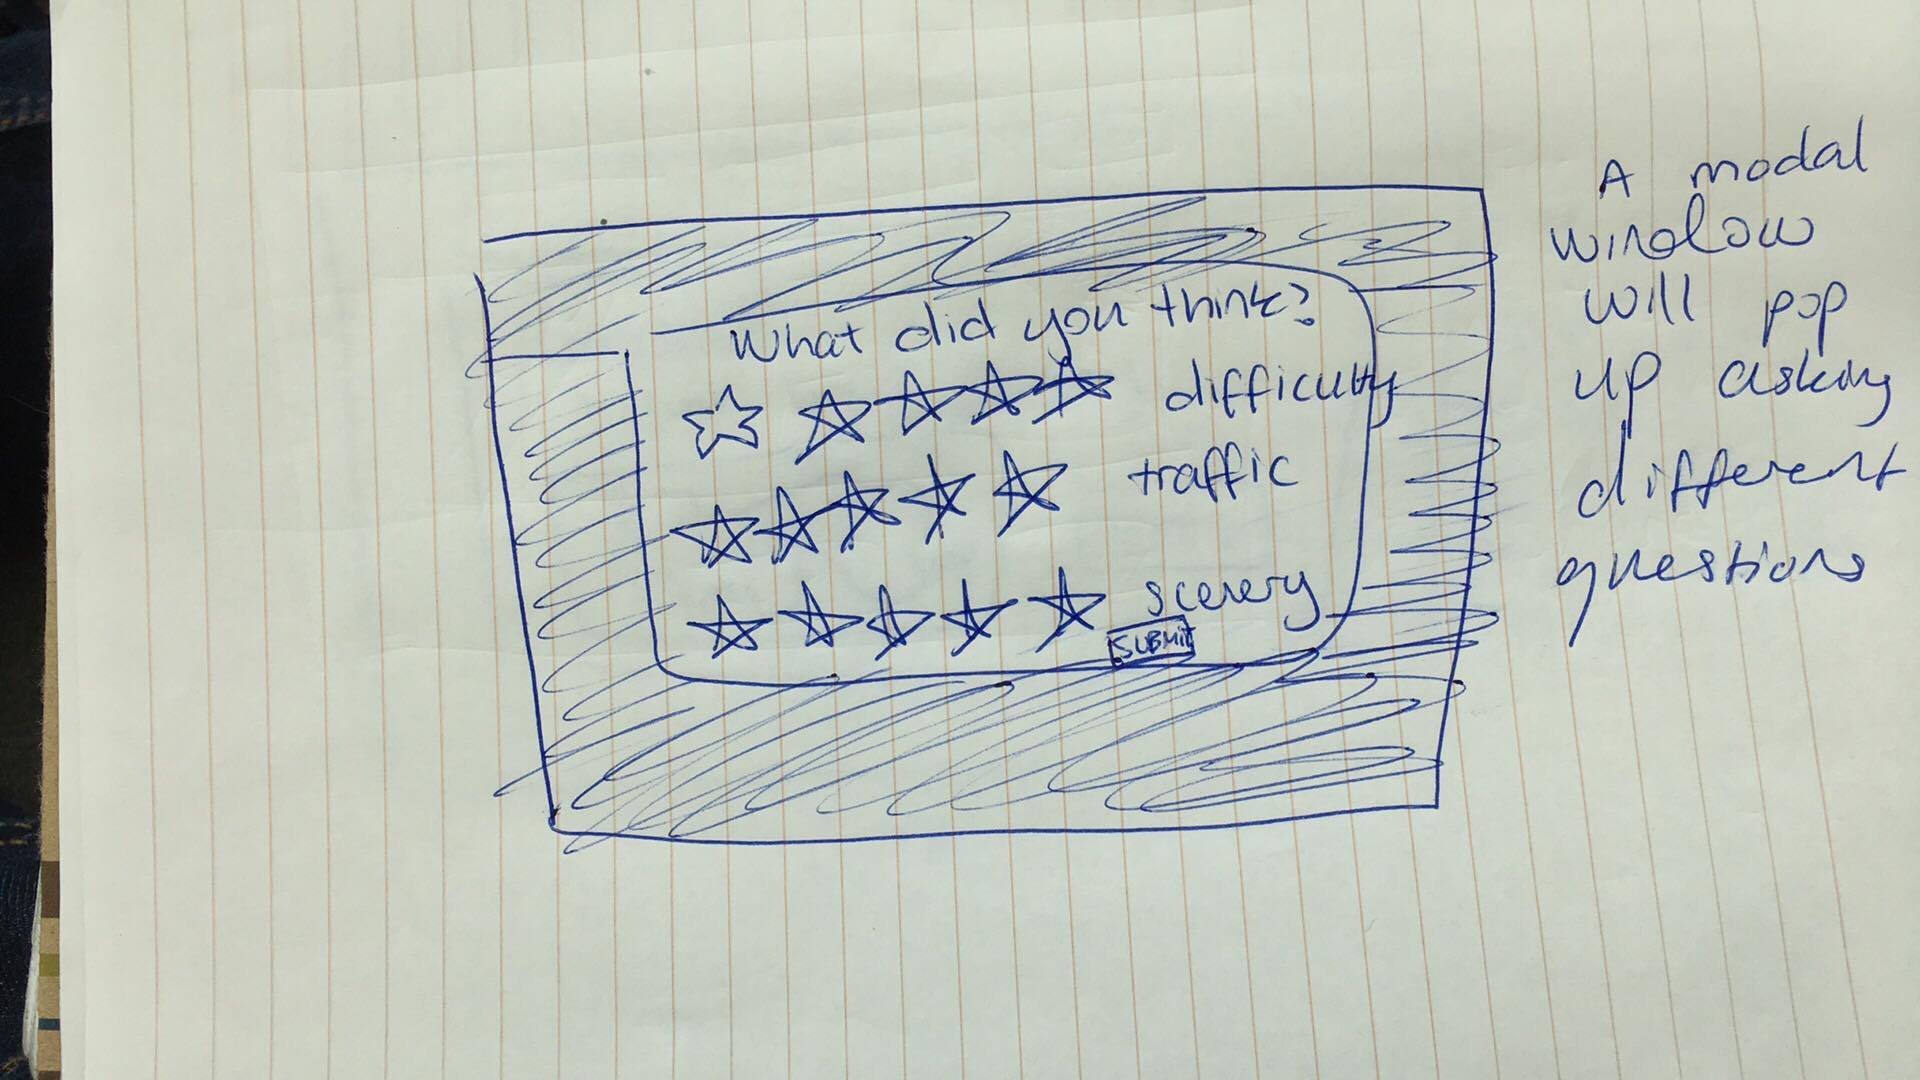 What did you think?
difficulty
traffic
scenery
SUBMIT
A modal
window
will pop
up asking
different
questions